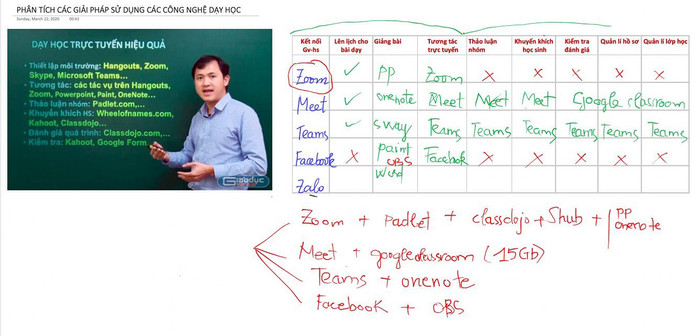 PHÂN TÍCH CÁC GIẢI PHÁP SỬ DỤNG CÁC CÔNG NGHỆ DẠY HỌC
Sunday, March 22, 2020 00:41
DẠY HỌC TRỰC TUYẾN HIỆU QUẢ
• Thiết lập môi trường: Hangouts, Zoom,
Skype, Microsoft Teams...
• Tương tác: các tác vụ trên Hangouts,
Zoom, Powerpoint, Paint, OneNote...
• Thảo luận nhóm: Padlet.com,...
• Khuyến khích HS: Wheelofnames.com,
Kahoot, Classdojo...
• Đánh giá quá trình: Classdojo.com,...
• Kiểm tra: Kahoot, Google Form
Giáodục
Kết nối Gv-hs Lên lịch cho bài dạy Giảng bài Tương tác trực tuyến Thảo luận nhóm Khuyến khích học sinh Kiểm tra đánh giá Quản lí hồ sơ Quản lí lớp học
Zoom ✓ PP Zoom X X X X X
Meet ✓ onenote Meet Meet Meet Google classroom
Teams ✓ sway Teams Teams Teams Teams Teams Teams
Facebook X paint OBS Facebok X X X X X
Zalo word
Zoom + padlet + classdojo + Shub + | PP onenote
Meet + googleclassroom (15Gb)
Teams + onenote
Facebook + OBS